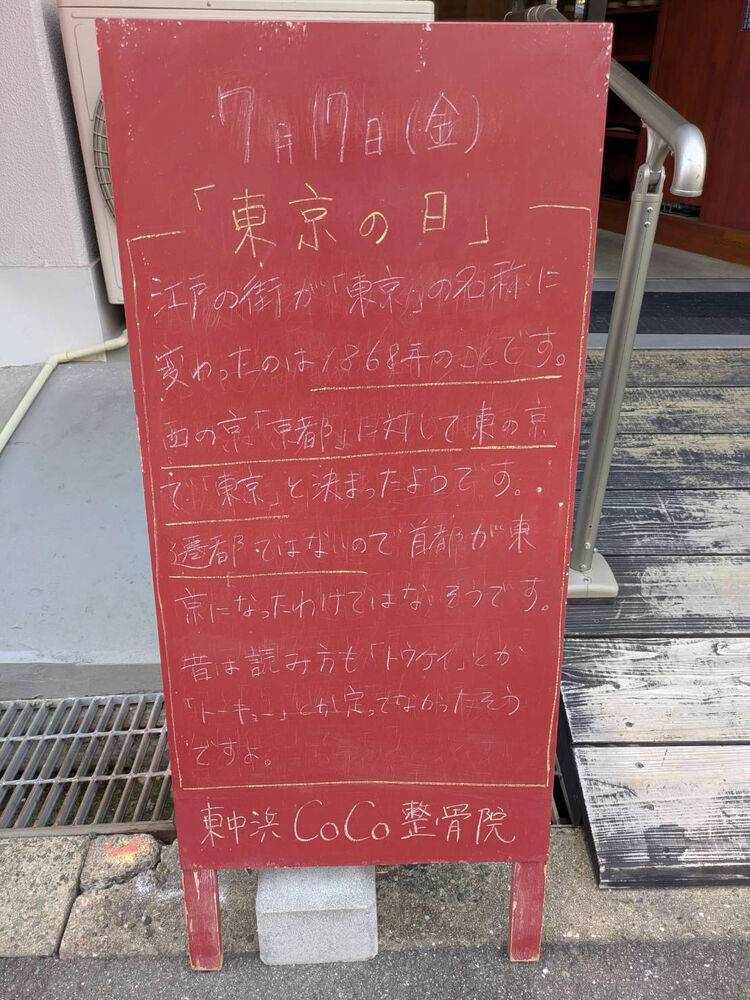 7月17日(金)
「東京の日」
江戸の街が「東京」の名称に
変わったのは1868年のことです。
西の京「京都」に対して東の京
で「東京」と決まったようです。
遷都ではないので首都が東
京になったわけではないそうです。
昔は読み方も「トウケイ」とか
「トーキョー」とか定ってなかったそう
ですよ。
東中浜CoCo整骨院